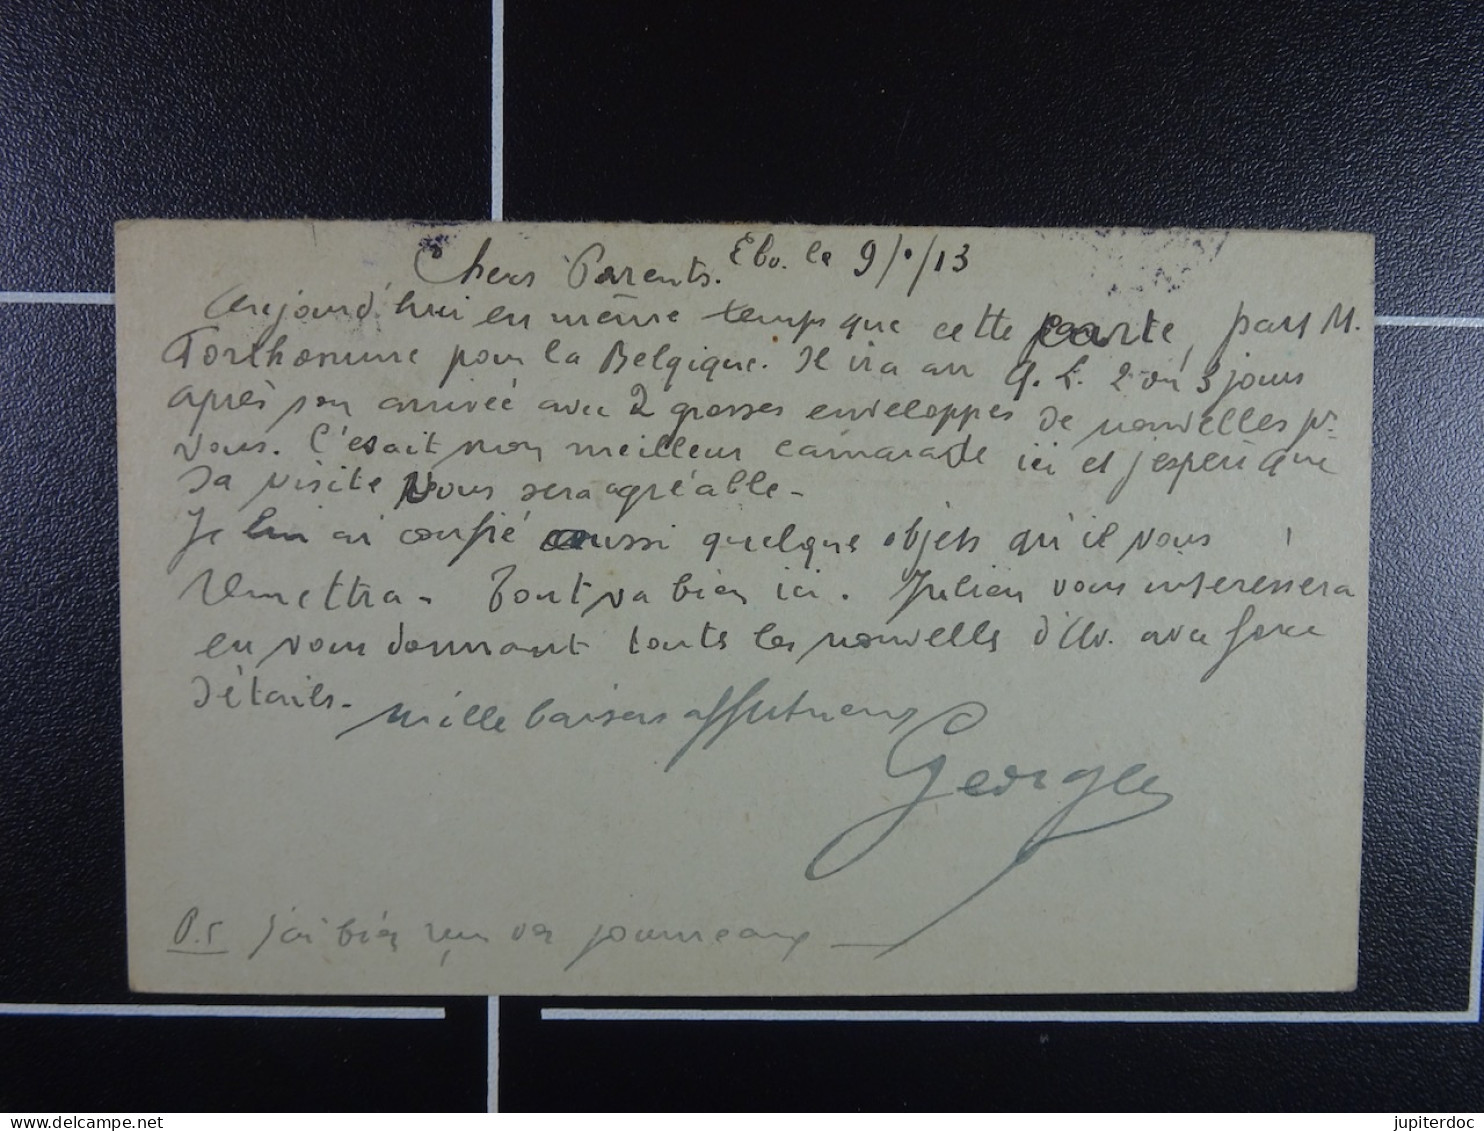 Chers Parents. Ebv. le 9/1/13
Aujourd'hui en même temps que cette carte, part M.
Forthomme pour la Belgique. Il ira au q. L. 2 où 3 jours
après son arrivée avec 2 grosses enveloppes de nouvelles pr
vous. C'était mon meilleur camarade ici et j'espère que
sa visite vous sera agréable -
Je lui ai confié aussi quelques objets qu'il vous
remettra - Tout va bien ici. Julien vous intéressera
en vous donnant toutes les nouvelles d'Ev. avec force
détails -
mille baisers affectueux
Georges
P.S j'ai bien reçu vos journeaux —
jupiterdoc